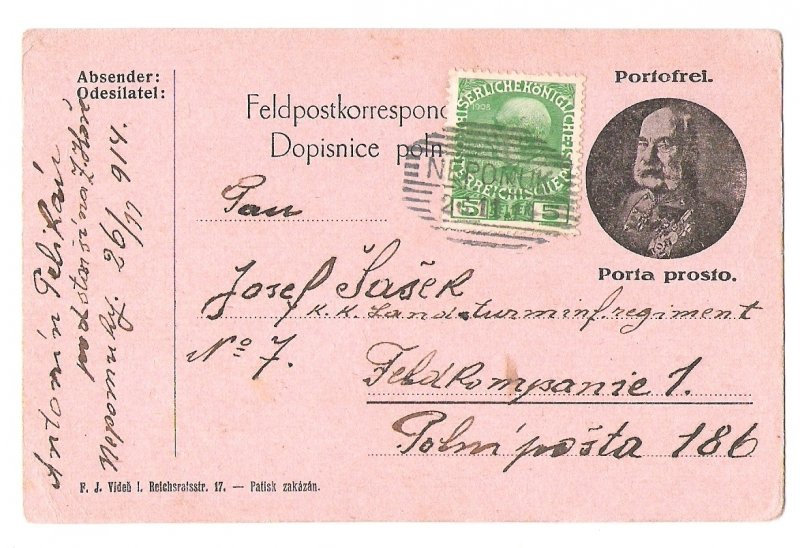 Absender:
Odesilatel:
Portofrei.
Feldpostkorrespond
Dopisnice poln
KAISERLICHEKÖNIGLICHEÖSTERREICHISCHEPOST
1908
5 5
NEPOMUK
Porta prosto.
Pan
Josef Šašek
k. k. Landsturminf.regiment
No 7.
Feldkompanie 1.
Polní pošta 186
Antonín Pelikán
Nepomuky. 26/11 914.
F. J. Vídeň I. Reichsratsstr. 17. — Patisk zakázán.